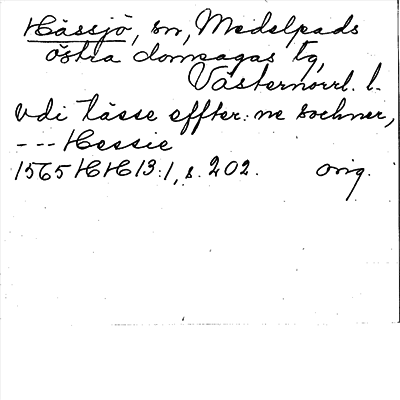 Hässjö, sn, Medelpads
östra domsagas tg,
Västernorrl. l.
vdi tässe effter: ne sochner,
--- Hessie
1565 HH 13:1, s. 202. orig.